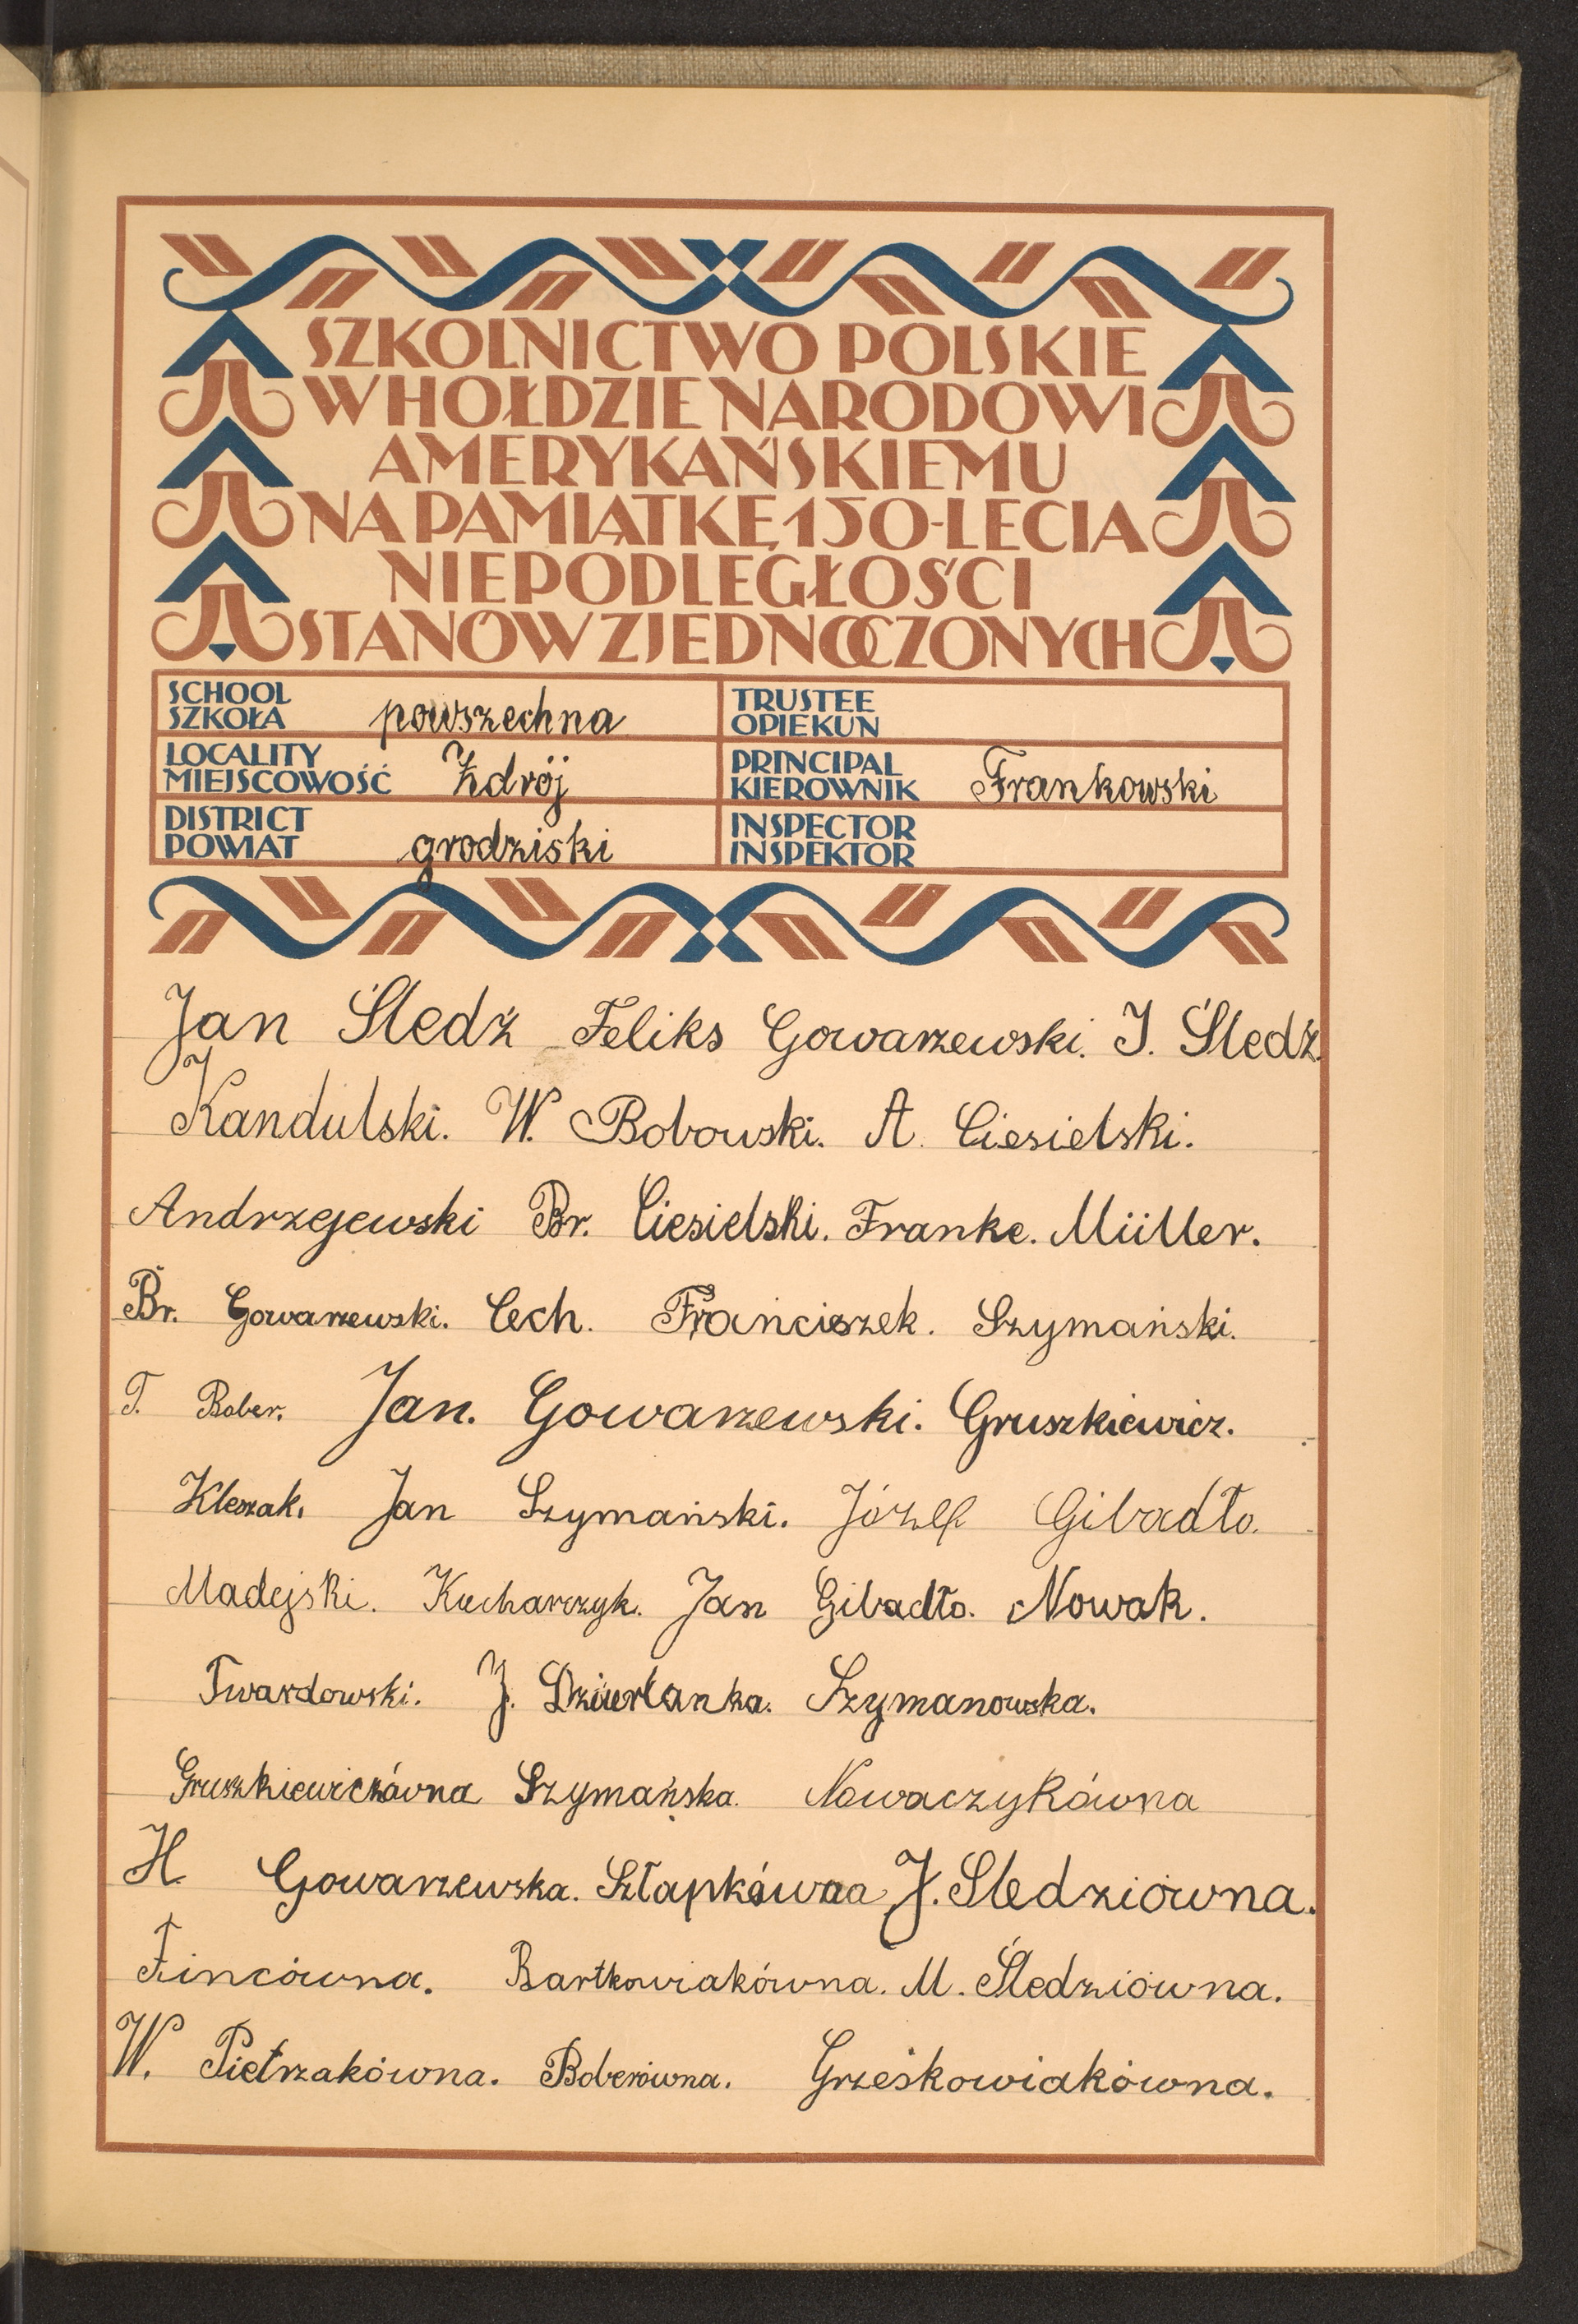 SZKOLNICTWO POLSKIE
W HOŁDZIE NARODOWI
AMERYKAŃSKIEMU
NA PAMIĄTKĘ 150-LECIA
NIEPODLEGŁOŚCI
STANÓW ZJEDNOCZONYCH
SCHOOL
SZKOŁA powszechna
TRUSTEE
OPIEKUN
LOCALITY
MIEJSCOWOŚĆ Zdrój
PRINCIPAL
KIEROWNIK Frankowski
DISTRICT
POWIAT grodziski
INSPECTOR
INSPEKTOR
Jan Śledź Feliks Gowarzewski. J. Śledź.
Kandulski. W. Bobowski. A. Ciesielski.
Andrzejewski Br. Ciesielski. Franke. Müller.
Br. Gowarzewski. Cech. Franciszek. Szymański.
T. Bober. Jan. Gowarzewski. Gruszkiewicz.
Kleszak. Jan Szymański. Józef Gibadło.
Madejski. Kucharczyk. Jan Gibadło. Nowak.
Twardowski. J. Szymanowska.
Gruszkiewiczówna Szymańska. Nowaczykówna
H. Gowarzewska. Szłapkówna J. Śledziówna.
Bartkowiakówna. M. Śledziówna.
W. Pietrzakówna. Boberówna. Grześkowiakówna.